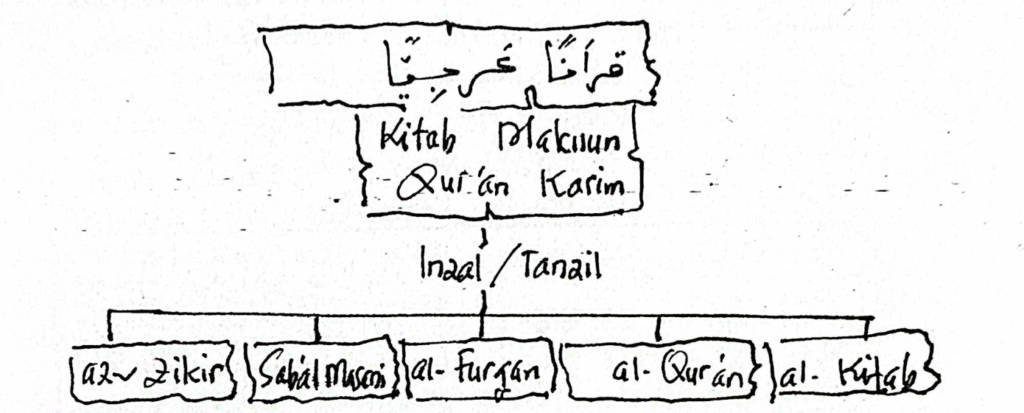 قرأناً عربيّاً
Kitab Maknun
Qur'an Karim
Inzal / Tanzil
az-zikir Sab'al Masani al-Furqan al-Qur'an al-Kitab